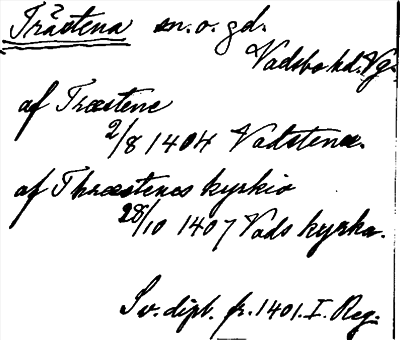 Trästena sn. o. gd.
Vadsbo hd. Vg.
af Træstene
2/8 1404 Vatstenæ.
af Thræstenes kyrkio
28/10 1407 Vads kyrka.
Sv. dipl. fr. 1401. I. Reg.